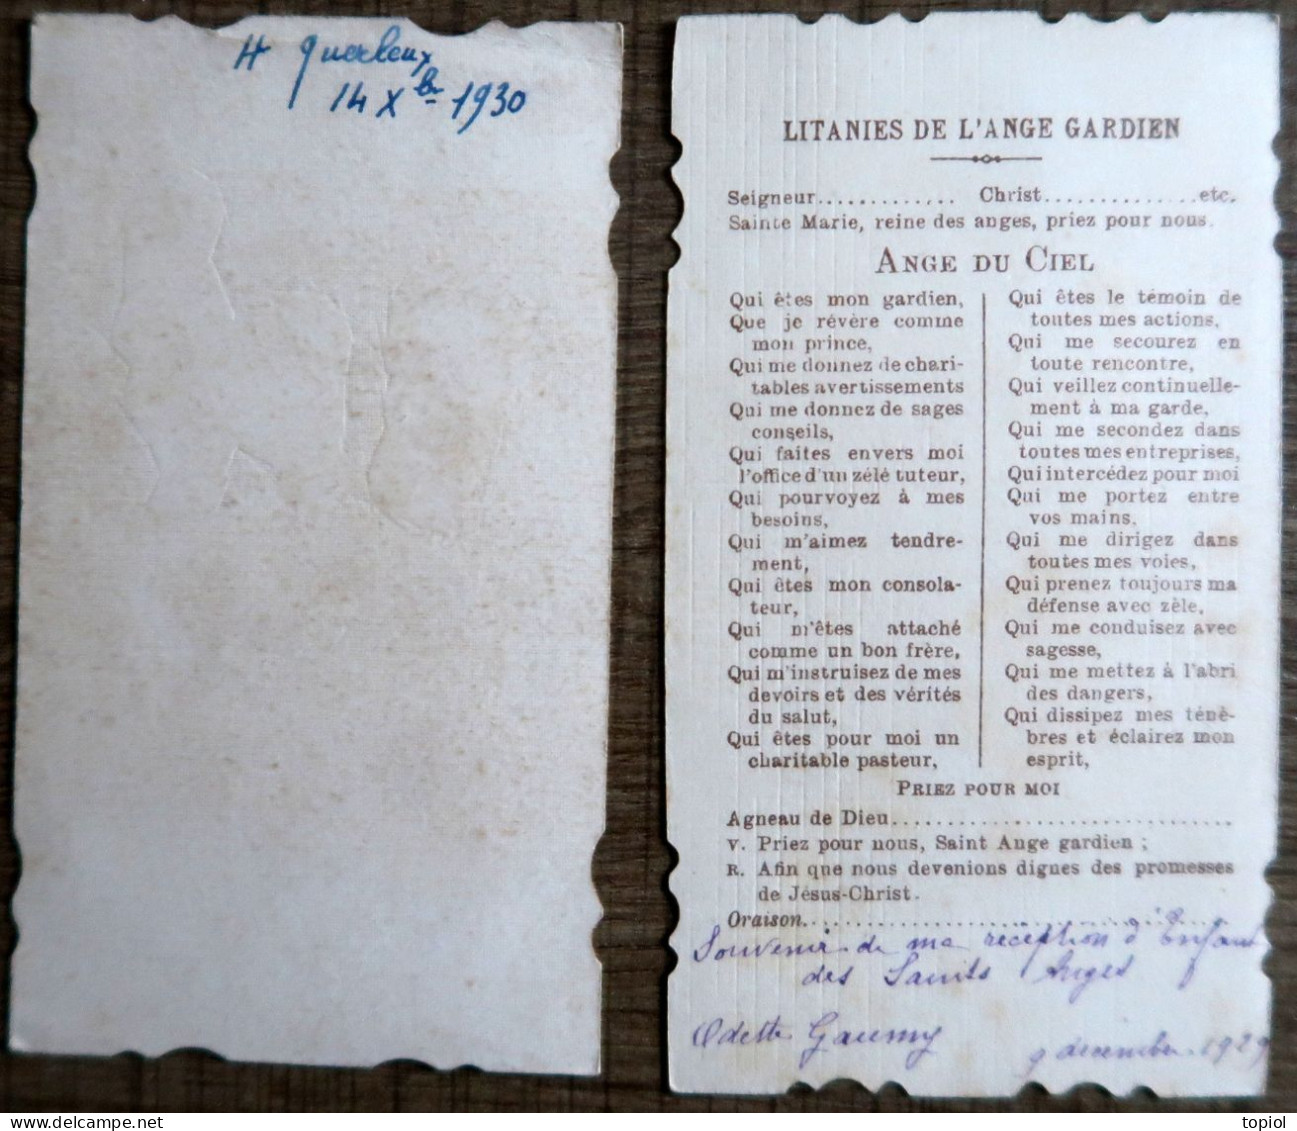 H Querleux
14 Xbre 1930
LITANIES DE L'ANGE GARDIEN
Seigneur............. Christ...............etc.
Sainte Marie, reine des anges, priez pour nous.
ANGE DU CIEL
Qui êtes mon gardien,
Que je révère comme
mon prince,
Qui me donnez de chari-
tables avertissements
Qui me donnez de sages
conseils,
Qui faites envers moi
l'office d'un zélé tuteur,
Qui pourvoyez à mes
besoins,
Qui m'aimez tendre-
ment,
Qui êtes mon consola-
teur,
Qui m'êtes attaché
comme un bon frère,
Qui m'instruisez de mes
devoirs et des vérités
du salut,
Qui êtes pour moi un
charitable pasteur,
Qui êtes le témoin de
toutes mes actions,
Qui me secourez en
toute rencontre,
Qui veillez continuelle-
ment à ma garde,
Qui me secondez dans
toutes mes entreprises,
Qui intercédez pour moi
Qui me portez entre
vos mains,
Qui me dirigez dans
toutes mes voies,
Qui prenez toujours ma
défense avec zèle,
Qui me conduisez avec
sagesse,
Qui me mettez à l'abri
des dangers,
Qui dissipez mes ténè-
bres et éclairez mon
esprit,
PRIEZ POUR MOI
Agneau de Dieu.................................
V. Priez pour nous, Saint Ange gardien ;
R. Afin que nous devenions dignes des promesses
de Jésus-Christ.
Oraison.........................................
Souvenir de ma réception d'Enfant
des Saints Anges
Odette Gaumy 9 décembre 1929
topiol